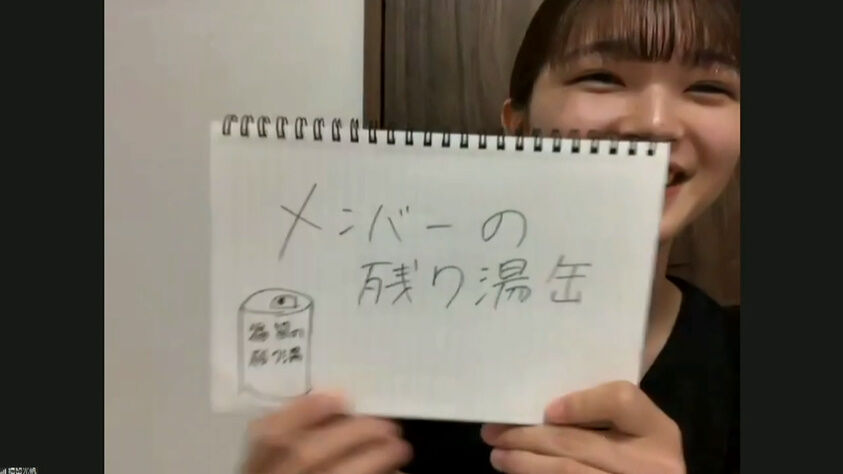 メンバーの
残り湯缶
残り湯